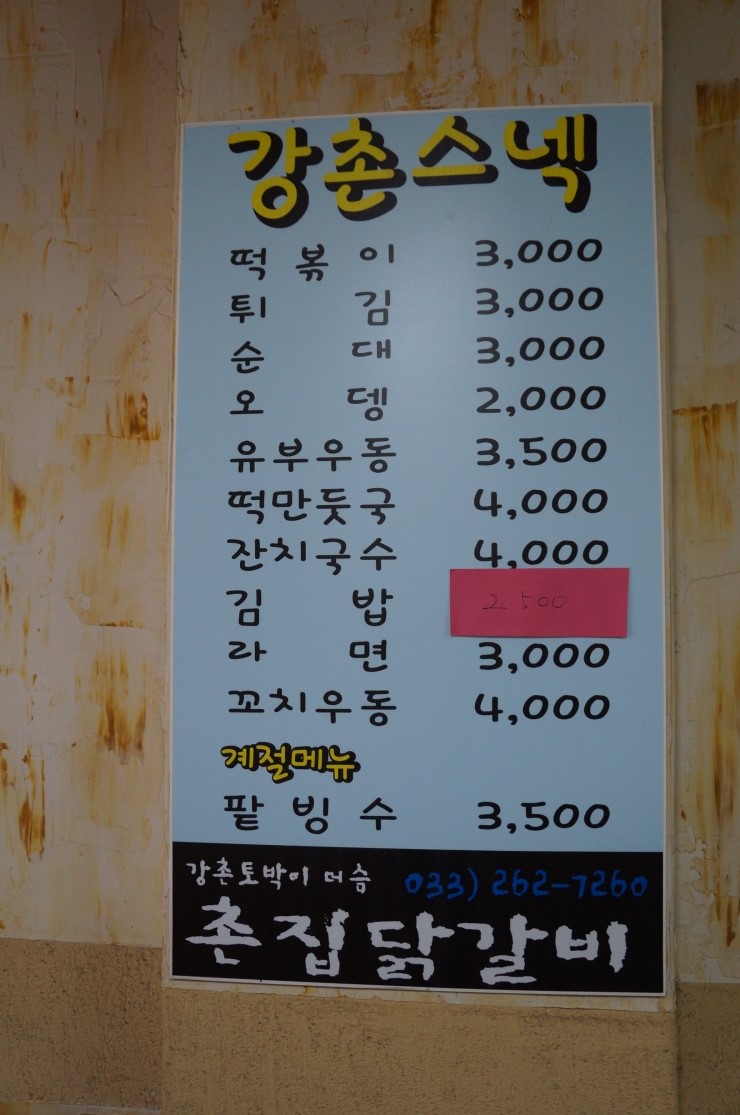 강촌스넥
떡볶이 3,000
튀김 3,000
순대 3,000
오뎅 2,000
유부우동 3,500
떡만둣국 4,000
잔치국수 4,000
김밥 2.500
라면 3,000
꼬치우동 4,000
계절메뉴
팥빙수 3,500
강촌토박이 머슴 033) 262-7260
촌집닭갈비